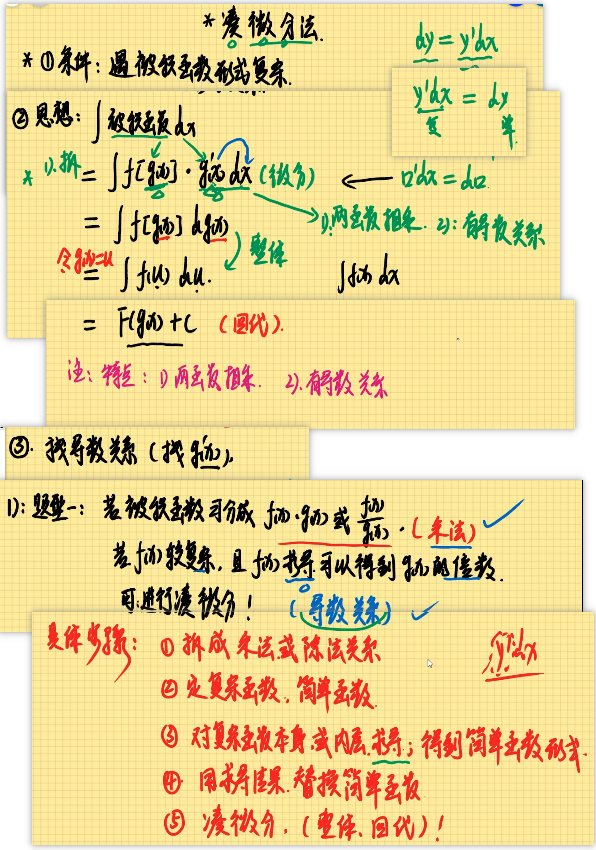 * 凑微分法.
dy = y'dx
* ①条件: 遇被积函数形式复杂.
y'dx = dy
复 单
②思想: ∫被积函数dx
* 1).拆 = ∫f[g(x)]·g'(x)dx (微分) ← □'dx = d□.
1).两函数相乘. 2): 有导数关系
= ∫f[g(x)] dg(x)
整体
令g(x)=u
= ∫f(u) du. ∫f(x) dx
= F(g(x))+C (回代).
注: 特点: 1)两函数相乘. 2).有导数关系
③. 找导数关系 (找g'(x)).
1): 题型一: 若被积函数可分成 f(x)·g(x) 或 f(x)/g(x). (乘法)
若f(x)较复杂, 且f(x)求导可以得到g(x)的倍数.
可进行凑微分! (导数关系)
具体步骤: ①拆成乘法或除法关系
y'dx
②定复杂函数, 简单函数.
③对复杂函数本身或内层求导; 得到简单函数形式.
④. 用求导结果.替换简单函数
⑤凑微分, (整体、回代)!